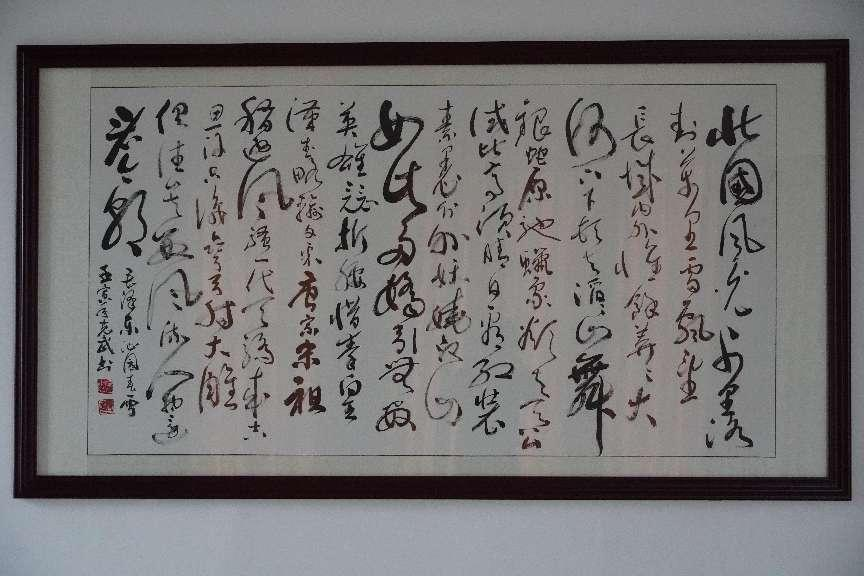 北國風光千里冰
封萬里雪飄望
長城內外惟餘莽々大
河上下頓失滔々山舞
銀蛇原馳蠟象欲与天公
試比高須晴日看紅裝
素裹分外妖嬈江山
如此多嬌引無數
英雄競折腰惜秦皇
漢武略輸文采唐宗宋祖
稍遜風騷一代天驕成吉
思汗只識彎弓射大雕
俱往矣數風流人物還
看今朝
毛澤東沁園春雪